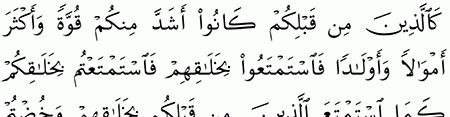 كَٱلَّذِينَ مِن قَبْلِكُمْ كَانُوٓا۟ أَشَدَّ مِنكُمْ قُوَّةً وَأَكْثَرَ
أَمْوَٰلًا وَأَوْلَـٰدًا فَٱسْتَمْتَعُوا۟ بِخَلَـٰقِهِمْ فَٱسْتَمْتَعْتُم بِخَلَـٰقِكُمْ
كَمَا ٱسْتَمْتَعَ ٱلَّذِينَ مِن قَبْلِكُم بِخَلَـٰقِهِمْ وَخُضْتُمْ